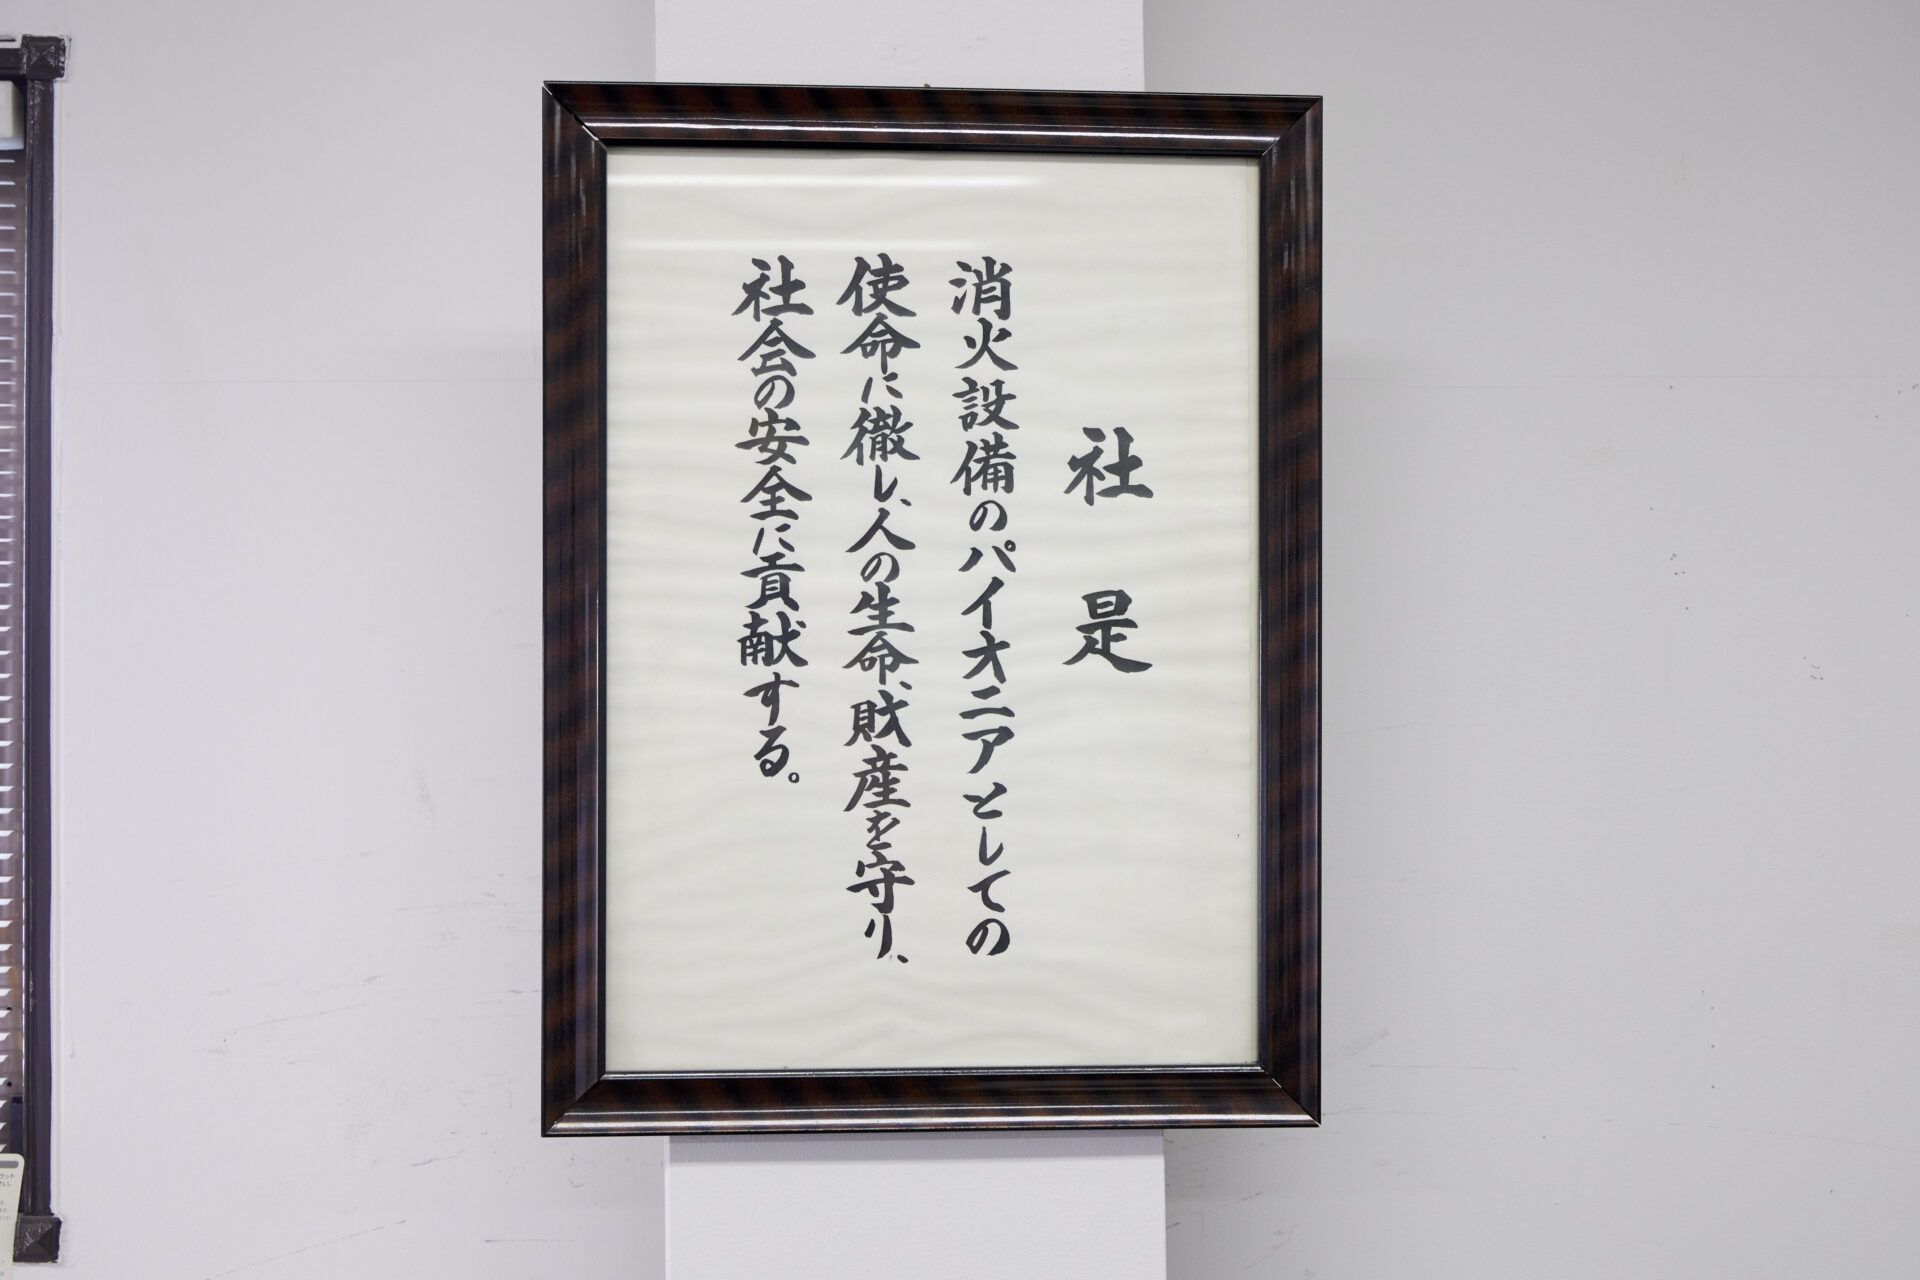 社是
消火設備のパイオニアとしての
使命に徹し、人の生命、財産を守り、
社会の安全に貢献する。